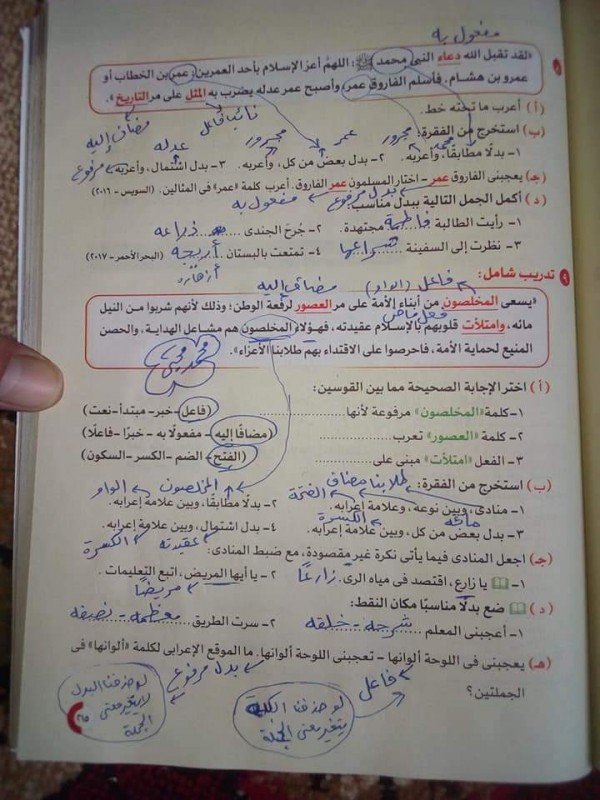 مفعول به
«لقد تقبل الله دعاء النبى محمد ﷺ: اللهمَّ أعز الإسلام بأحد العمرين: عمر بن الخطاب أو
عمرو بن هشام. فأسلم الفاروق عمر، وأصبح عمر عدله يضرب به المثل على مر التاريخ».
نائب فاعل
مضاف إليه
( أ ) أعرب ما تحته خط.
(ب) استخرج من الفقرة:
محمد
مجرور
عمر
مجرور
عدله
مرفوع
١- بدلًا مطابقًا، وأعربه. ٢- بدل بعض من كل، وأعربه. ٣- بدل اشتمال، وأعربه.
(جـ) يعجبنى الفاروق عمر - اختار المسلمون عمر الفاروق. أعرب كلمة «عمر» فى المثالين. (السويس - ٢٠١٦)
بدل مرفوع
مفعول به
( د ) أكمل الجمل التالية ببدل مناسب:
١- رأيت الطالبة فاطمة مجتهدة. ٢- جُرحَ الجندى ذراعه
٣- نظرت إلى السفينة شراعها ٤- تمتعت بالبستان أريجه (البحر الأحمر - ٢٠١٧)
أزهاره
تدريب شامل:
فاعل (الواو)
مضاف إليه
«يسعى المخلصون من أبناء الأمة على مر العصور لرفعة الوطن؛ وذلك لأنهم شربوا من النيل
فعل ماض
مائه، وامتلأت قلوبهم بالإسلام عقيدته، فهؤلاء المخلصون هم مشاعل الهداية، والحصن
المنيع لحماية الأمة، فاحرصوا على الاقتداء بهم طلابنا الأعزاء».
( أ ) اختر الإجابة الصحيحة مما بين القوسين:
١- كلمة «المخلصون» مرفوعة لأنها (فاعل - خبر - مبتدأ - نعت)
٢- كلمة «العصور» تعرب (مضافًا إليه - مفعولًا به - خبرًا - فاعلًا)
٣- الفعل «امتلأت» مبنى على (الفتح - الضم - الكسر - السكون)
(ب) استخرج من الفقرة:
طلابنا مضاف
الفتحة
المخلصون
الواو
١- منادى، وبين نوعه، وعلامة إعرابه. ٢- بدلًا مطابقًا، وبين علامة إعرابه.
مائه
الكسرة
٣- بدل بعض من كل، وبين علامة إعرابه. ٤- بدل اشتمال، وبين علامة إعرابه.
عقيدته
الكسرة
(جـ) اجعل المنادى فيما يأتى نكرة غير مقصودة، مع ضبط المنادى:
١- يا زارع، اقتصد فى مياه الرى. زارعًا ٢- يا أيها المريض، اتبع التعليمات.
مريضًا
( د ) ضع بدلًا مناسبًا مكان النقط:
١- أعجبنى المعلم شرحه - خلقه ٢- سرت الطريق معظمه - نصفه
(هـ) يعجبنى فى اللوحة ألوانها - تعجبنى اللوحة ألوانها. ما الموقع الإعرابى لكلمة «ألوانها» فى
الجملتين؟
فاعل
بدل مرفوع
لو حذفنا الكلمة
يتغير معنى الجملة
لو حذفنا البدل
لا يتغير معنى
الجملة